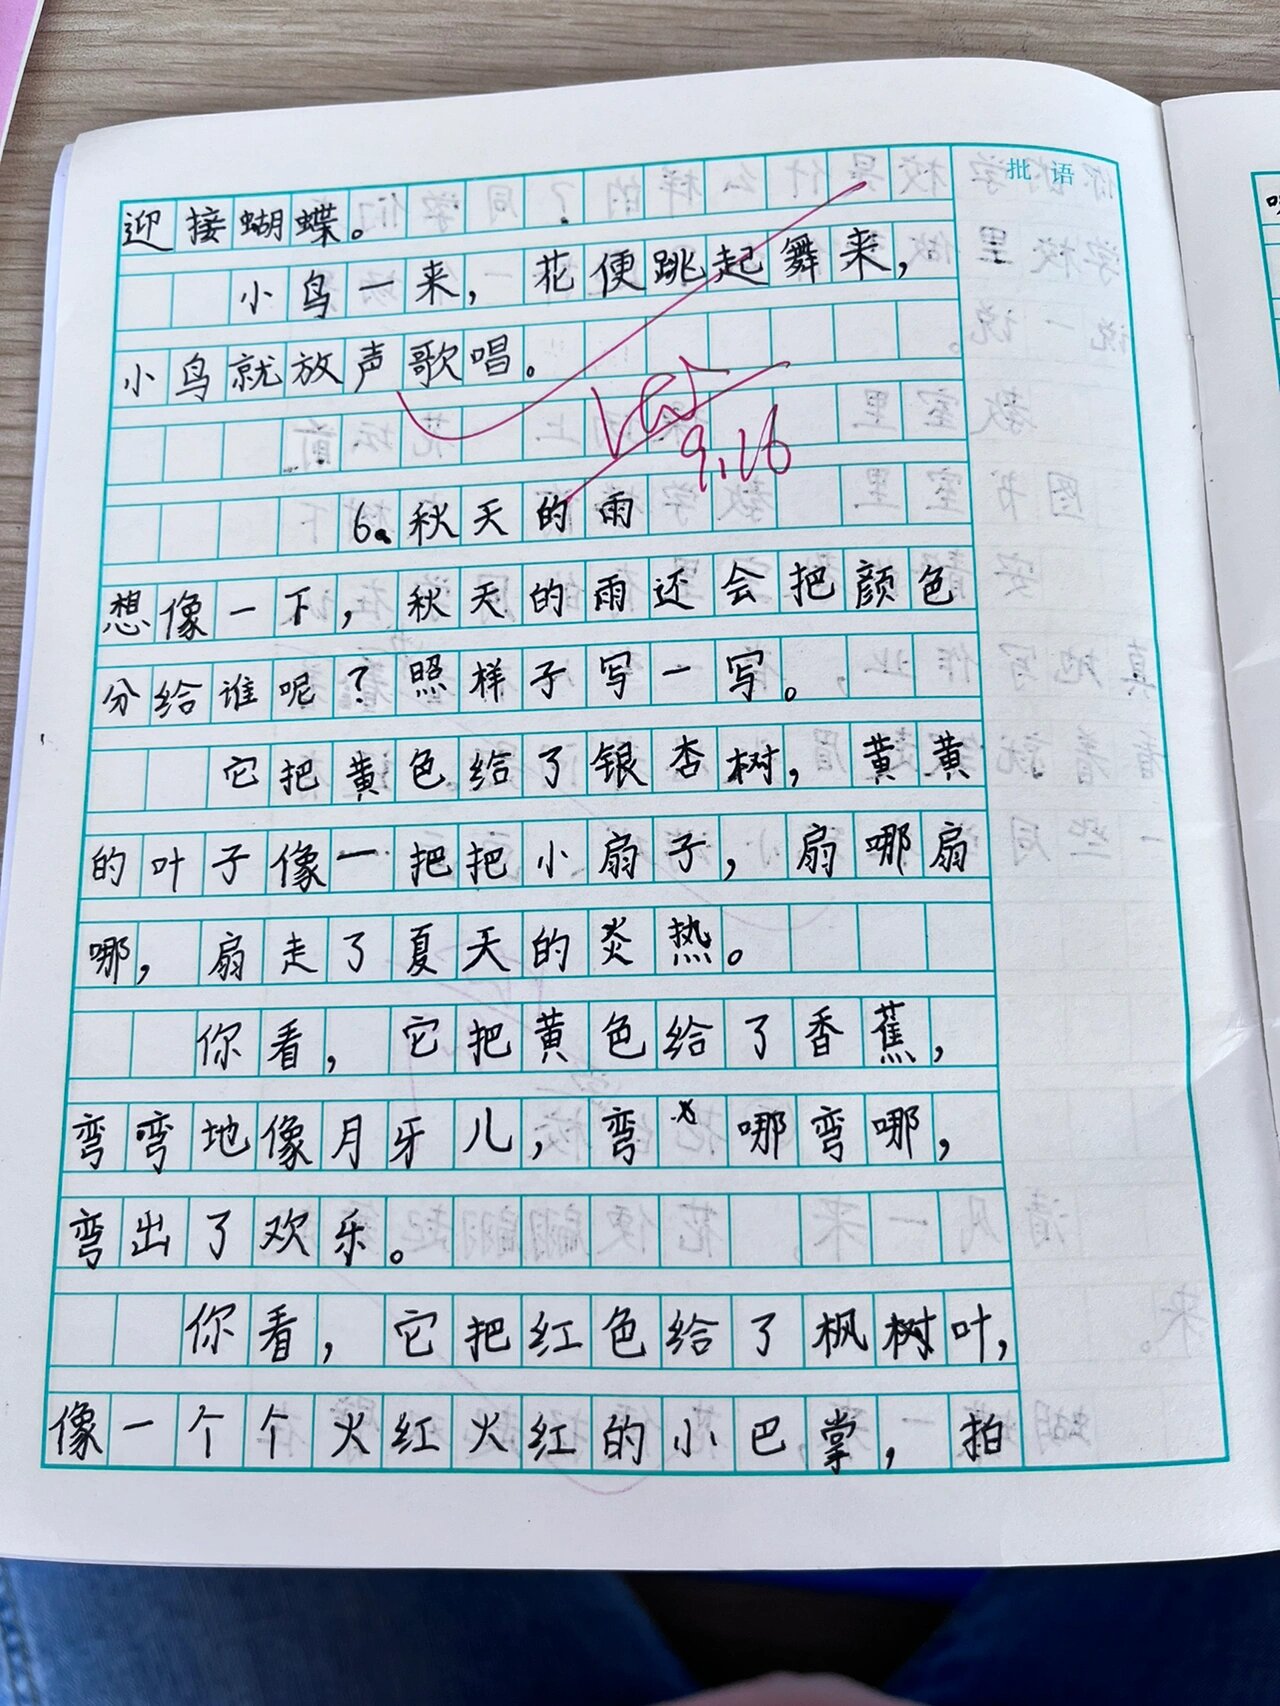 批语
迎接蝴蝶。
小鸟一来，花便跳起舞来，
小鸟就放声歌唱。
9.16
6.秋天的雨
想像一下，秋天的雨还会把颜色
分给谁呢？照样子写一写。
它把黄色给了银杏树，黄黄
的叶子像一把把小扇子，扇哪扇
哪，扇走了夏天的炎热。
你看，它把黄色给了香蕉，
弯弯地像月牙儿，弯哪弯哪，
弯出了欢乐。
你看，它把红色给了枫树叶，
像一个个火红火红的小巴掌，拍